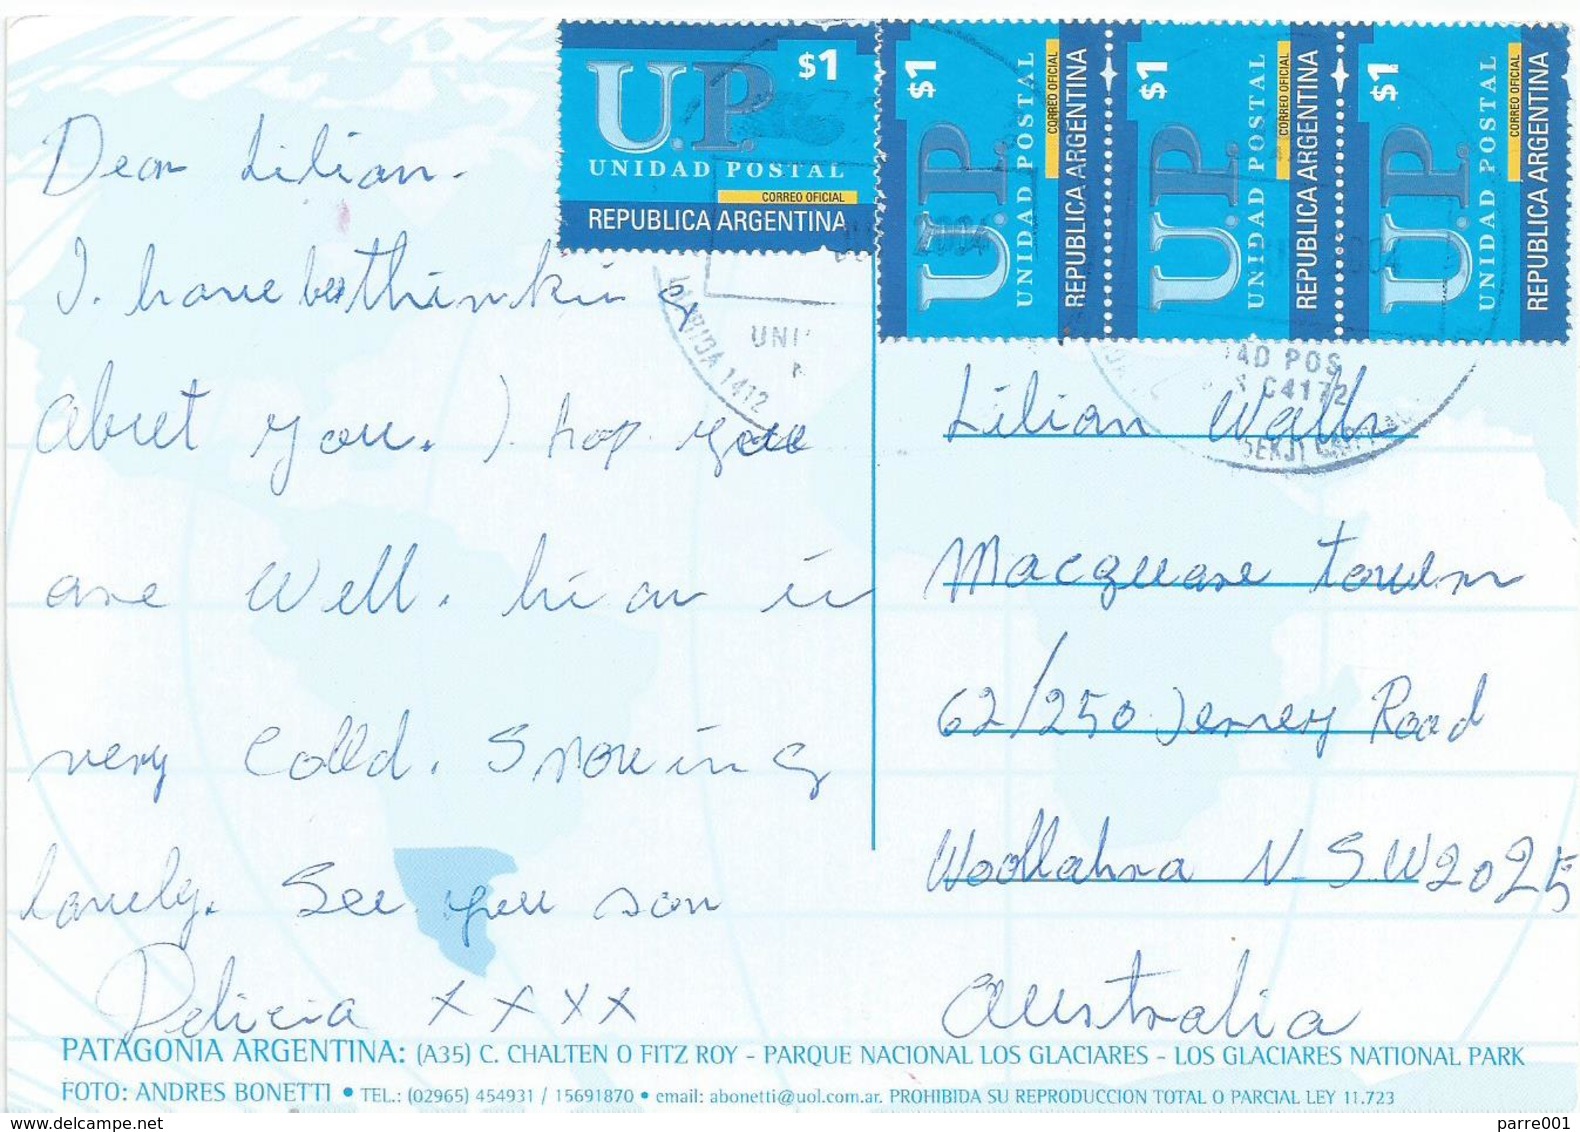 Dear Lilian.
I. have bee thinkin g
about you. I hop you
are well. hi ar is
very colld. Snowing
lovely. See you son
Delicia x x x x
$1
U.P.
UNIDAD POSTAL
CORREO OFICIAL
REPUBLICA ARGENTINA
$1
U.P.
UNIDAD POSTAL
CORREO OFICIAL
REPUBLICA ARGENTINA
$1
U.P.
UNIDAD POSTAL
CORREO OFICIAL
REPUBLICA ARGENTINA
$1
U.P.
UNIDAD POSTAL
CORREO OFICIAL
REPUBLICA ARGENTINA
2004
1412
UNI
AD POS
C4172
Lilian
Macquare towern
62/250 Jersey Road
Woollahra N.S.W 2025
Australia
PATAGONIA ARGENTINA: (A35) C. CHALTEN O FITZ ROY - PARQUE NACIONAL LOS GLACIARES - LOS GLACIARES NATIONAL PARK
FOTO: ANDRES BONETTI • TEL.: (02965) 454931 / 15691870 • email: abonetti@uol.com.ar. PROHIBIDA SU REPRODUCCION TOTAL O PARCIAL LEY 11.723
www.delcampe.net
parre001